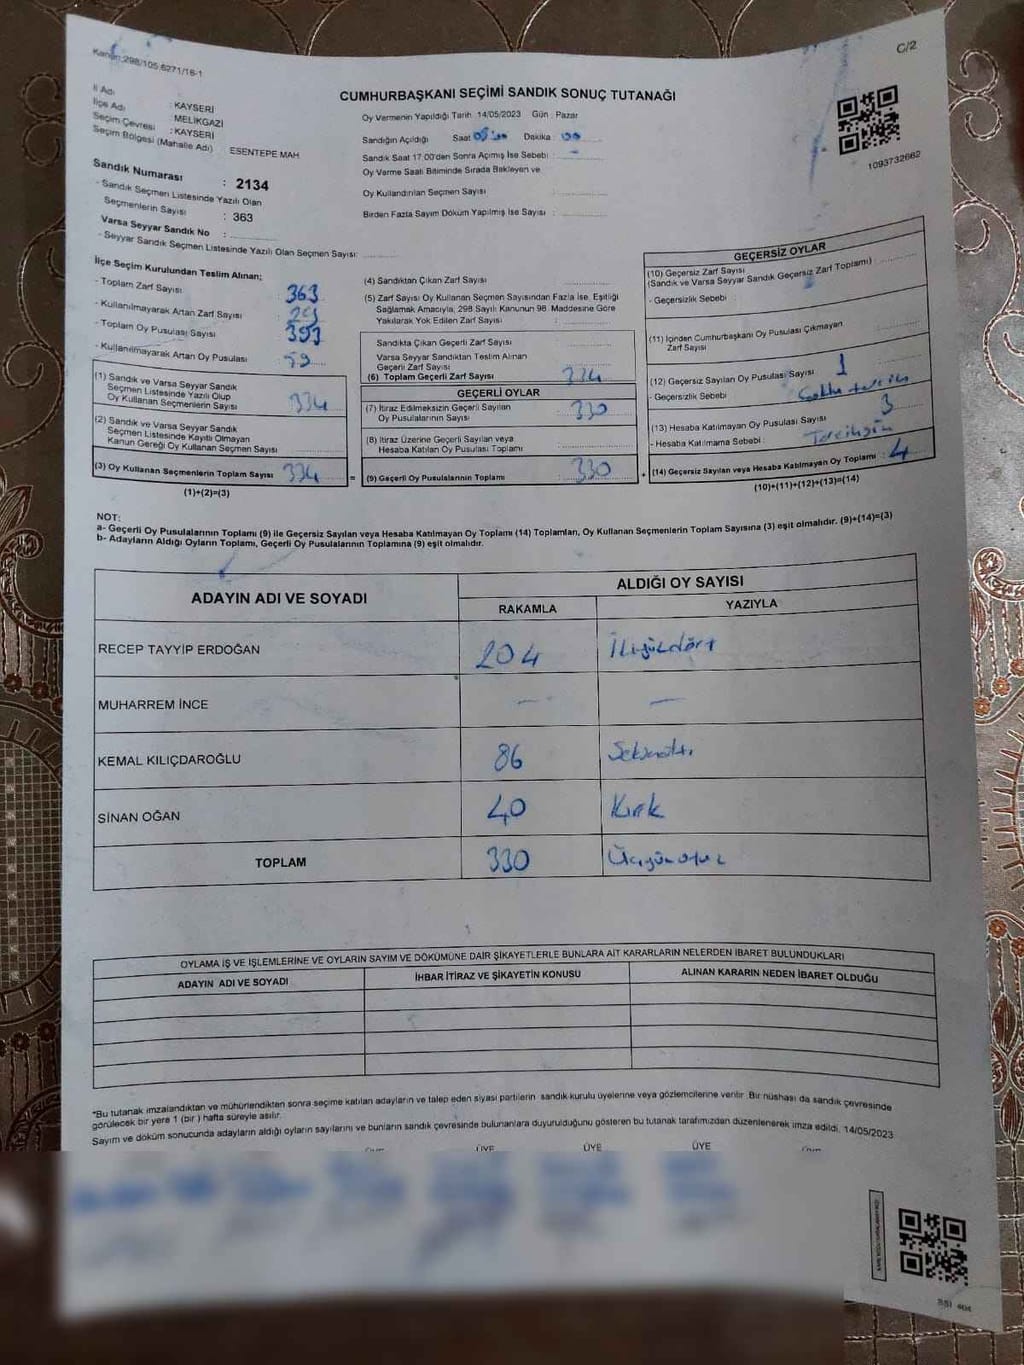 Kanun:298/105,6271/16-1
C/2
CUMHURBAŞKANI SEÇİMİ SANDIK SONUÇ TUTANAĞI
İl Adı : KAYSERİ
İlçe Adı : MELİKGAZİ
Seçim Çevresi : KAYSERİ
Seçim Bölgesi (Mahalle Adı) : ESENTEPE MAH
Oy Vermenin Yapıldığı Tarih 14/05/2023 Gün : Pazar
Sandığın Açıldığı Saat Dakika
Sandık Saat 17.00'den Sonra Açılmış İse Sebebi : -
Oy Verme Saati Bitiminde Sırada Bekleyen ve
Oy Kullandırılan Seçmen Sayısı
Birden Fazla Sayım Döküm Yapılmış İse Sayısı :
1093732662
Sandık Numarası : 2134
- Sandık Seçmen Listesinde Yazılı Olan
Seçmenlerin Sayısı : 363
Varsa Seyyar Sandık No :
- Seyyar Sandık Seçmen Listesinde Yazılı Olan Seçmen Sayısı:
İlçe Seçim Kurulundan Teslim Alınan;
- Toplam Zarf Sayısı : 363
- Kullanılmayarak Artan Zarf Sayısı : 29
- Toplam Oy Pusulası Sayısı : 393
- Kullanılmayarak Artan Oy Pusulası : 59
(1) Sandık ve Varsa Seyyar Sandık
Seçmen Listesinde Yazılı Olup
Oy Kullanan Seçmenlerin Sayısı : 334
(2) Sandık ve Varsa Seyyar Sandık
Seçmen Listesinde Kayıtlı Olmayan
Kanun Gereği Oy Kullanan Seçmen Sayısı
(3) Oy Kullanan Seçmenlerin Toplam Sayısı 334
(1)+(2)=(3)
(4) Sandıktan Çıkan Zarf Sayısı
(5) Zarf Sayısı Oy Kullanan Seçmen Sayısından Fazla İse, Eşitliği
Sağlamak Amacıyla, 298 Sayılı Kanunun 98. Maddesine Göre
Yakılarak Yok Edilen Zarf Sayısı :
Sandıkta Çıkan Geçerli Zarf Sayısı :
Varsa Seyyar Sandıktan Teslim Alınan
Geçerli Zarf Sayısı
(6) Toplam Geçerli Zarf Sayısı : 334
GEÇERLİ OYLAR
(7) İtiraz Edilmeksizin Geçerli Sayılan
Oy Pusulalarının Sayısı : 330
(8) İtiraz Üzerine Geçerli Sayılan veya
Hesaba Katılan Oy Pusulası Toplamı
(9) Geçerli Oy Pusulalarının Toplamı : 330
GEÇERSİZ OYLAR
(10) Geçersiz Zarf Sayısı
(Sandık ve Varsa Seyyar Sandık Geçersiz Zarf Toplamı) :
- Geçersizlik Sebebi :
(11) İçinden Cumhurbaşkanı Oy Pusulası Çıkmayan
Zarf Sayısı
(12) Geçersiz Sayılan Oy Pusulası Sayısı : 1
- Geçersizlik Sebebi :
(13) Hesaba Katılmayan Oy Pusulası Sayısı 3
- Hesaba Katılmama Sebebi :
(14) Geçersiz Sayılan veya Hesaba Katılmayan Oy Toplamı : 4
(10)+(11)+(12)+(13)=(14)
NOT:
a- Geçerli Oy Pusulalarının Toplamı (9) ile Geçersiz Sayılan veya Hesaba Katılmayan Oy Toplamı (14) Toplamları, Oy Kullanan Seçmenlerin Toplam Sayısına (3) eşit olmalıdır. (9)+(14)=(3)
b- Adayların Aldığı Oyların Toplamı, Geçerli Oy Pusulalarının Toplamına (9) eşit olmalıdır.
ADAYIN ADI VE SOYADI
ALDIĞI OY SAYISI
RAKAMLA YAZIYLA
RECEP TAYYİP ERDOĞAN 204 İkiyüzdört
MUHARREM İNCE - -
KEMAL KILIÇDAROĞLU 86 Seksenaltı
SİNAN OĞAN 40 Kırk
TOPLAM 330 Üçyüzotuz
OYLAMA İŞ VE İŞLEMLERİNE VE OYLARIN SAYIM VE DÖKÜMÜNE DAİR ŞİKAYETLERLE BUNLARA AİT KARARLARIN NELERDEN İBARET BULUNDUKLARI
ADAYIN ADI VE SOYADI İHBAR İTİRAZ VE ŞİKAYETİN KONUSU ALINAN KARARIN NEDEN İBARET OLDUĞU
*Bu tutanak imzalandıktan ve mühürlendikten sonra seçime katılan adayların ve talep eden siyasi partilerin sandık kurulu üyelerine veya gözlemcilerine verilir. Bir nüshası da sandık çevresinde
görülecek bir yere 1 (bir) hafta süreyle asılır.
Sayım ve döküm sonucunda adayların aldığı oyların sayılarını ve bunların sandık çevresinde bulunanlara duyurulduğunu gösteren bu tutanak tarafımızdan düzenlenerek imza edildi. 14/05/2023
ÜYE ÜYE ÜYE